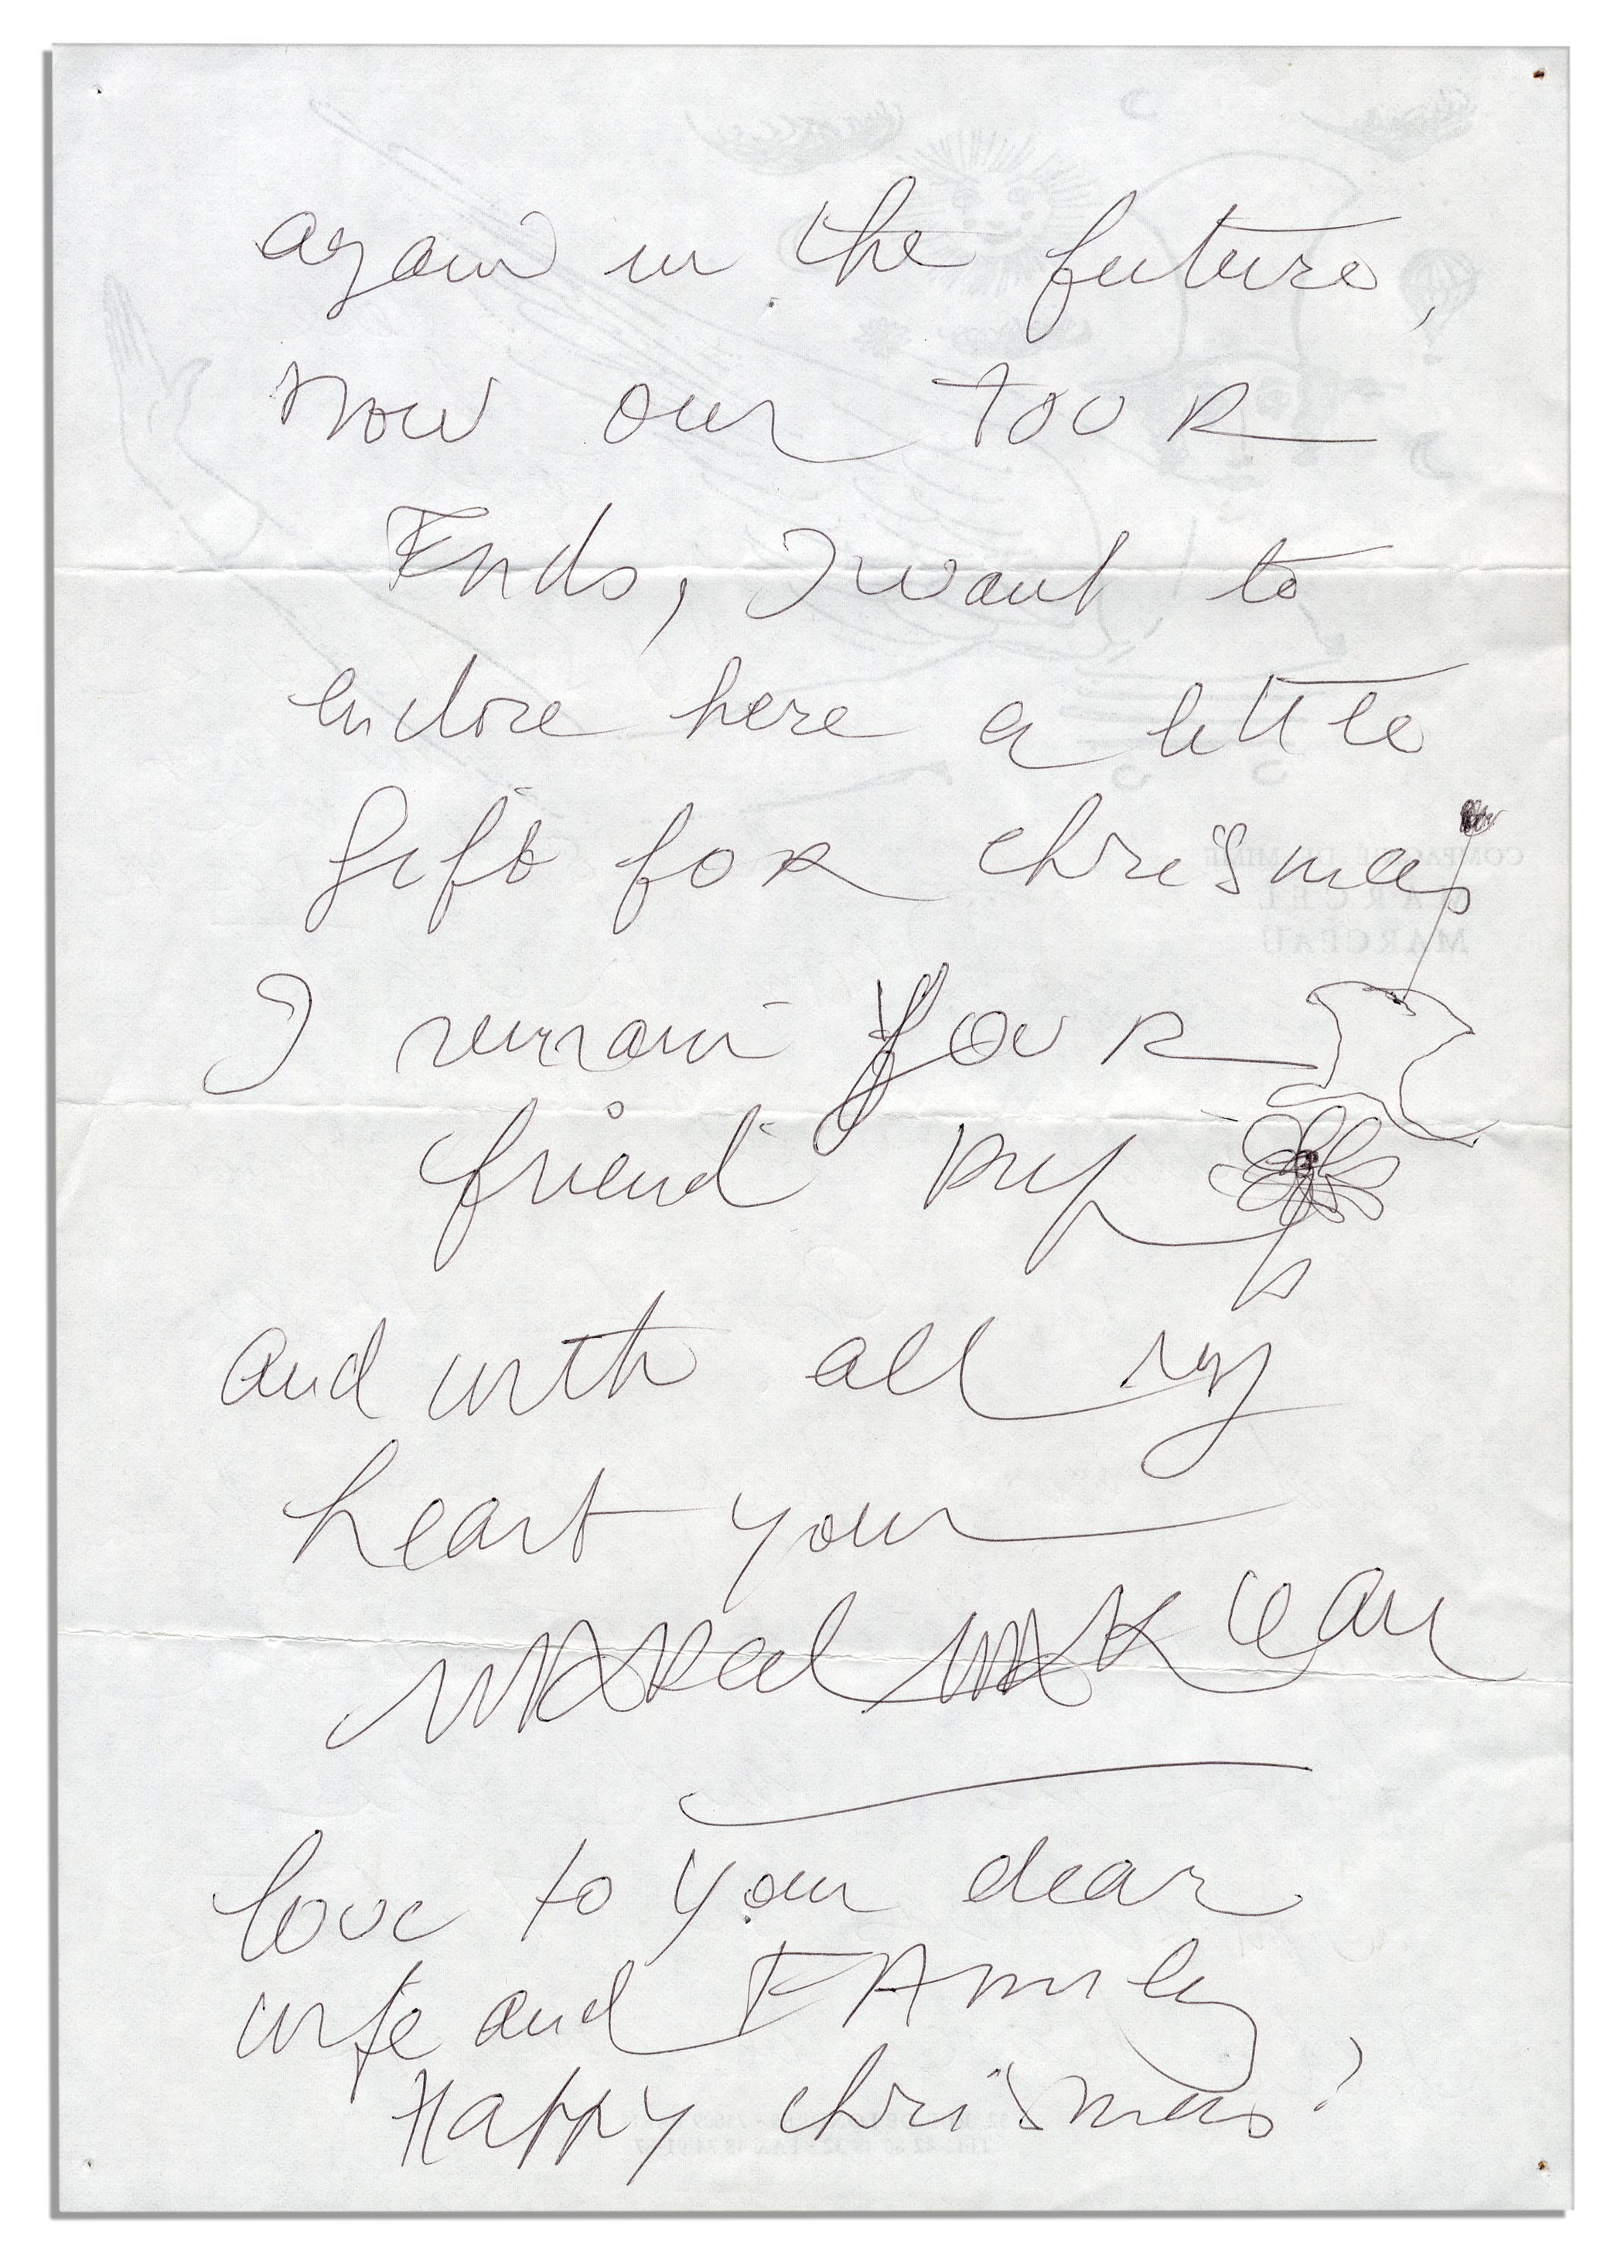 again in the future,
now our TOUR
Ends, I want to
enclose here a little
gift for chrismas
I remain YOUR
friend Bip
and with all my
heart your
MARCEL MARCEAU
love to your dear
wife and FAmily
Happy chrismas!
COMPAGNIE DE MIME
MARCEL
MARCEAU